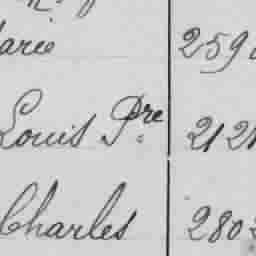 arie 259
Louis Pre 212
Charles 280